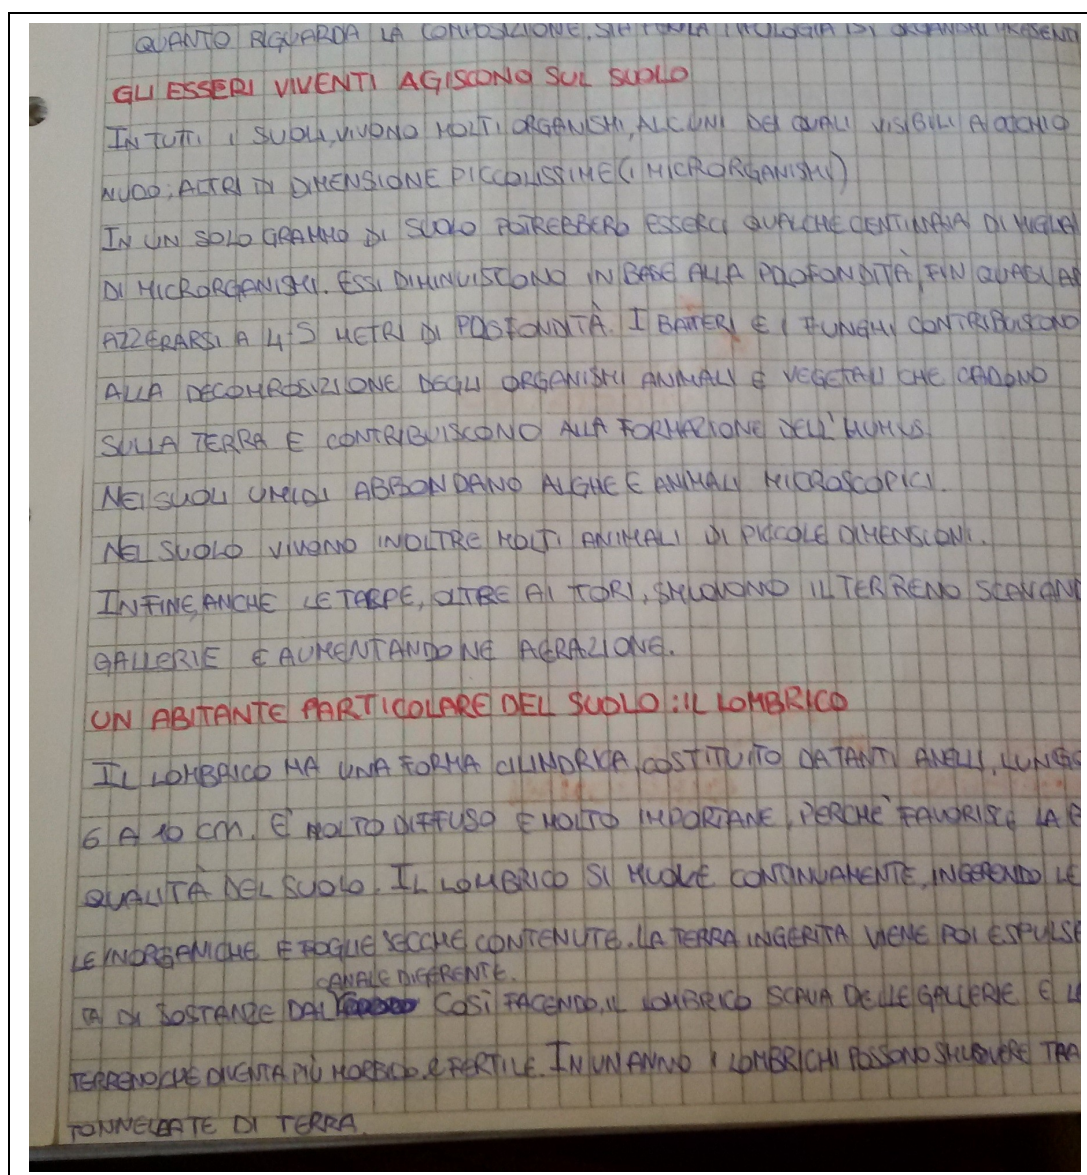 QUANTO RIGUARDA LA COMPOSIZIONE, SIA DI ORGANISMI PRESENTI
GLI ESSERI VIVENTI AGISCONO SUL SUOLO
IN TUTTI I SUOLI, VIVONO MOLTI ORGANISMI, ALCUNI DEI QUALI VISIBILI A OCCHIO
NUDO; ALTRI DI DIMENSIONE PICCOLISSIME (I MICRORGANISMI)
IN UN SOLO GRAMMO DI SUOLO POTREBBERO ESSERCI QUALCHE CENTINAIA DI MIGLIAI
DI MICRORGANISMI. ESSI DIMINUISCONO IN BASE ALLA POFONDITÀ, FIN QUASI AD
AZZERARSI A 4-5 METRI DI POSFONDITÀ. I BATTERI E I FUNGHI CONTRIBUISCONO
ALLA DECOMPOSIZIONE DEGLI ORGANISMI ANIMALI E VEGETALI CHE CADONO
SULLA TERRA E CONTRIBUISCONO ALLA FORMAZIONE DELL'HUMUS.
NEI SUOLI UMIDI ABBONDANO ALGHE E ANIMALI MICROSCOPICI.
NEL SUOLO VIVONO INOLTRE MOLTI ANIMALI DI PICCOLE DIMENSIONI.
INFINE, ANCHE LE TARPE, OLTRE AI TORI, SMUOVONO IL TERRENO SCAVAN
GALLERIE E AUMENTANDONE AERAZIONE.
UN ABITANTE PARTICOLARE DEL SUOLO: IL LOMBRICO
IL LOMBRICO HA UNA FORMA CILINDRICA, COSTITUITO DA TANTI ANELLI, LUNGO
6 A 10 CM. È MOLTO DIFFUSO E MOLTO IMPORTANE, PERCHÉ FAVORISCE LA
QUALITÀ DEL SUOLO. IL LOMBRICO SI MUOVE CONTINUAMENTE, INGERENDO LE
LE INORGANICHE E FOGLIE SECCHE CONTENUTE. LA TERRA INGERITA VIENE POI ESPULSA
CANALE DIGERENTE.
TA DI SOSTANZE DAL COSÌ FACENDO, IL LOMBRICO SCAVA DELLE GALLERIE E
TERRENO CHE DIVENTA PIÙ MORBIDO E FERTILE. IN UN ANNO I LOMBRICHI POSSONO SMUOVERE TRA
TONNELLATE DI TERRA.